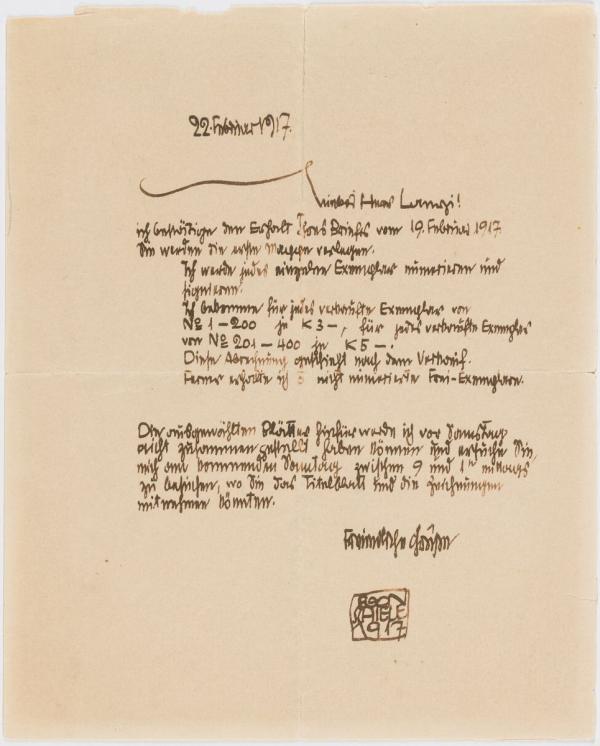 22. Februar 1917.
Liebes Herr Lanyi!
ich bestätige den Erhalt Ihres Briefes vom 19. Februar 1917
Sie werden die erste Mappe verlegen.
Ich werde jedes einzelne Exemplar numerieren und
signieren.
Ich bekomme für jedes verkaufte Exemplar von
No 1 – 200 je K 3 –, für jedes verkaufte Exemplar
von No 201 – 400 je K 5 –.
Diese Abrechnung geschieht nach dem Verkauf.
Ferner erhalte ich 5 nicht numerierte Frei-Exemplare.
Die ausgewählten Blätter hiefür werde ich vor Samstag
nicht zusammengestellt haben können und ersuche Sie,
mich am kommenden Samstag zwischen 9 und 1h mittags
zu besuchen, wo Sie das Titelblatt und die Zeichnungen
mitnehmen könnten.
Freundliche Grüsse
EGON
SCHIELE
1917